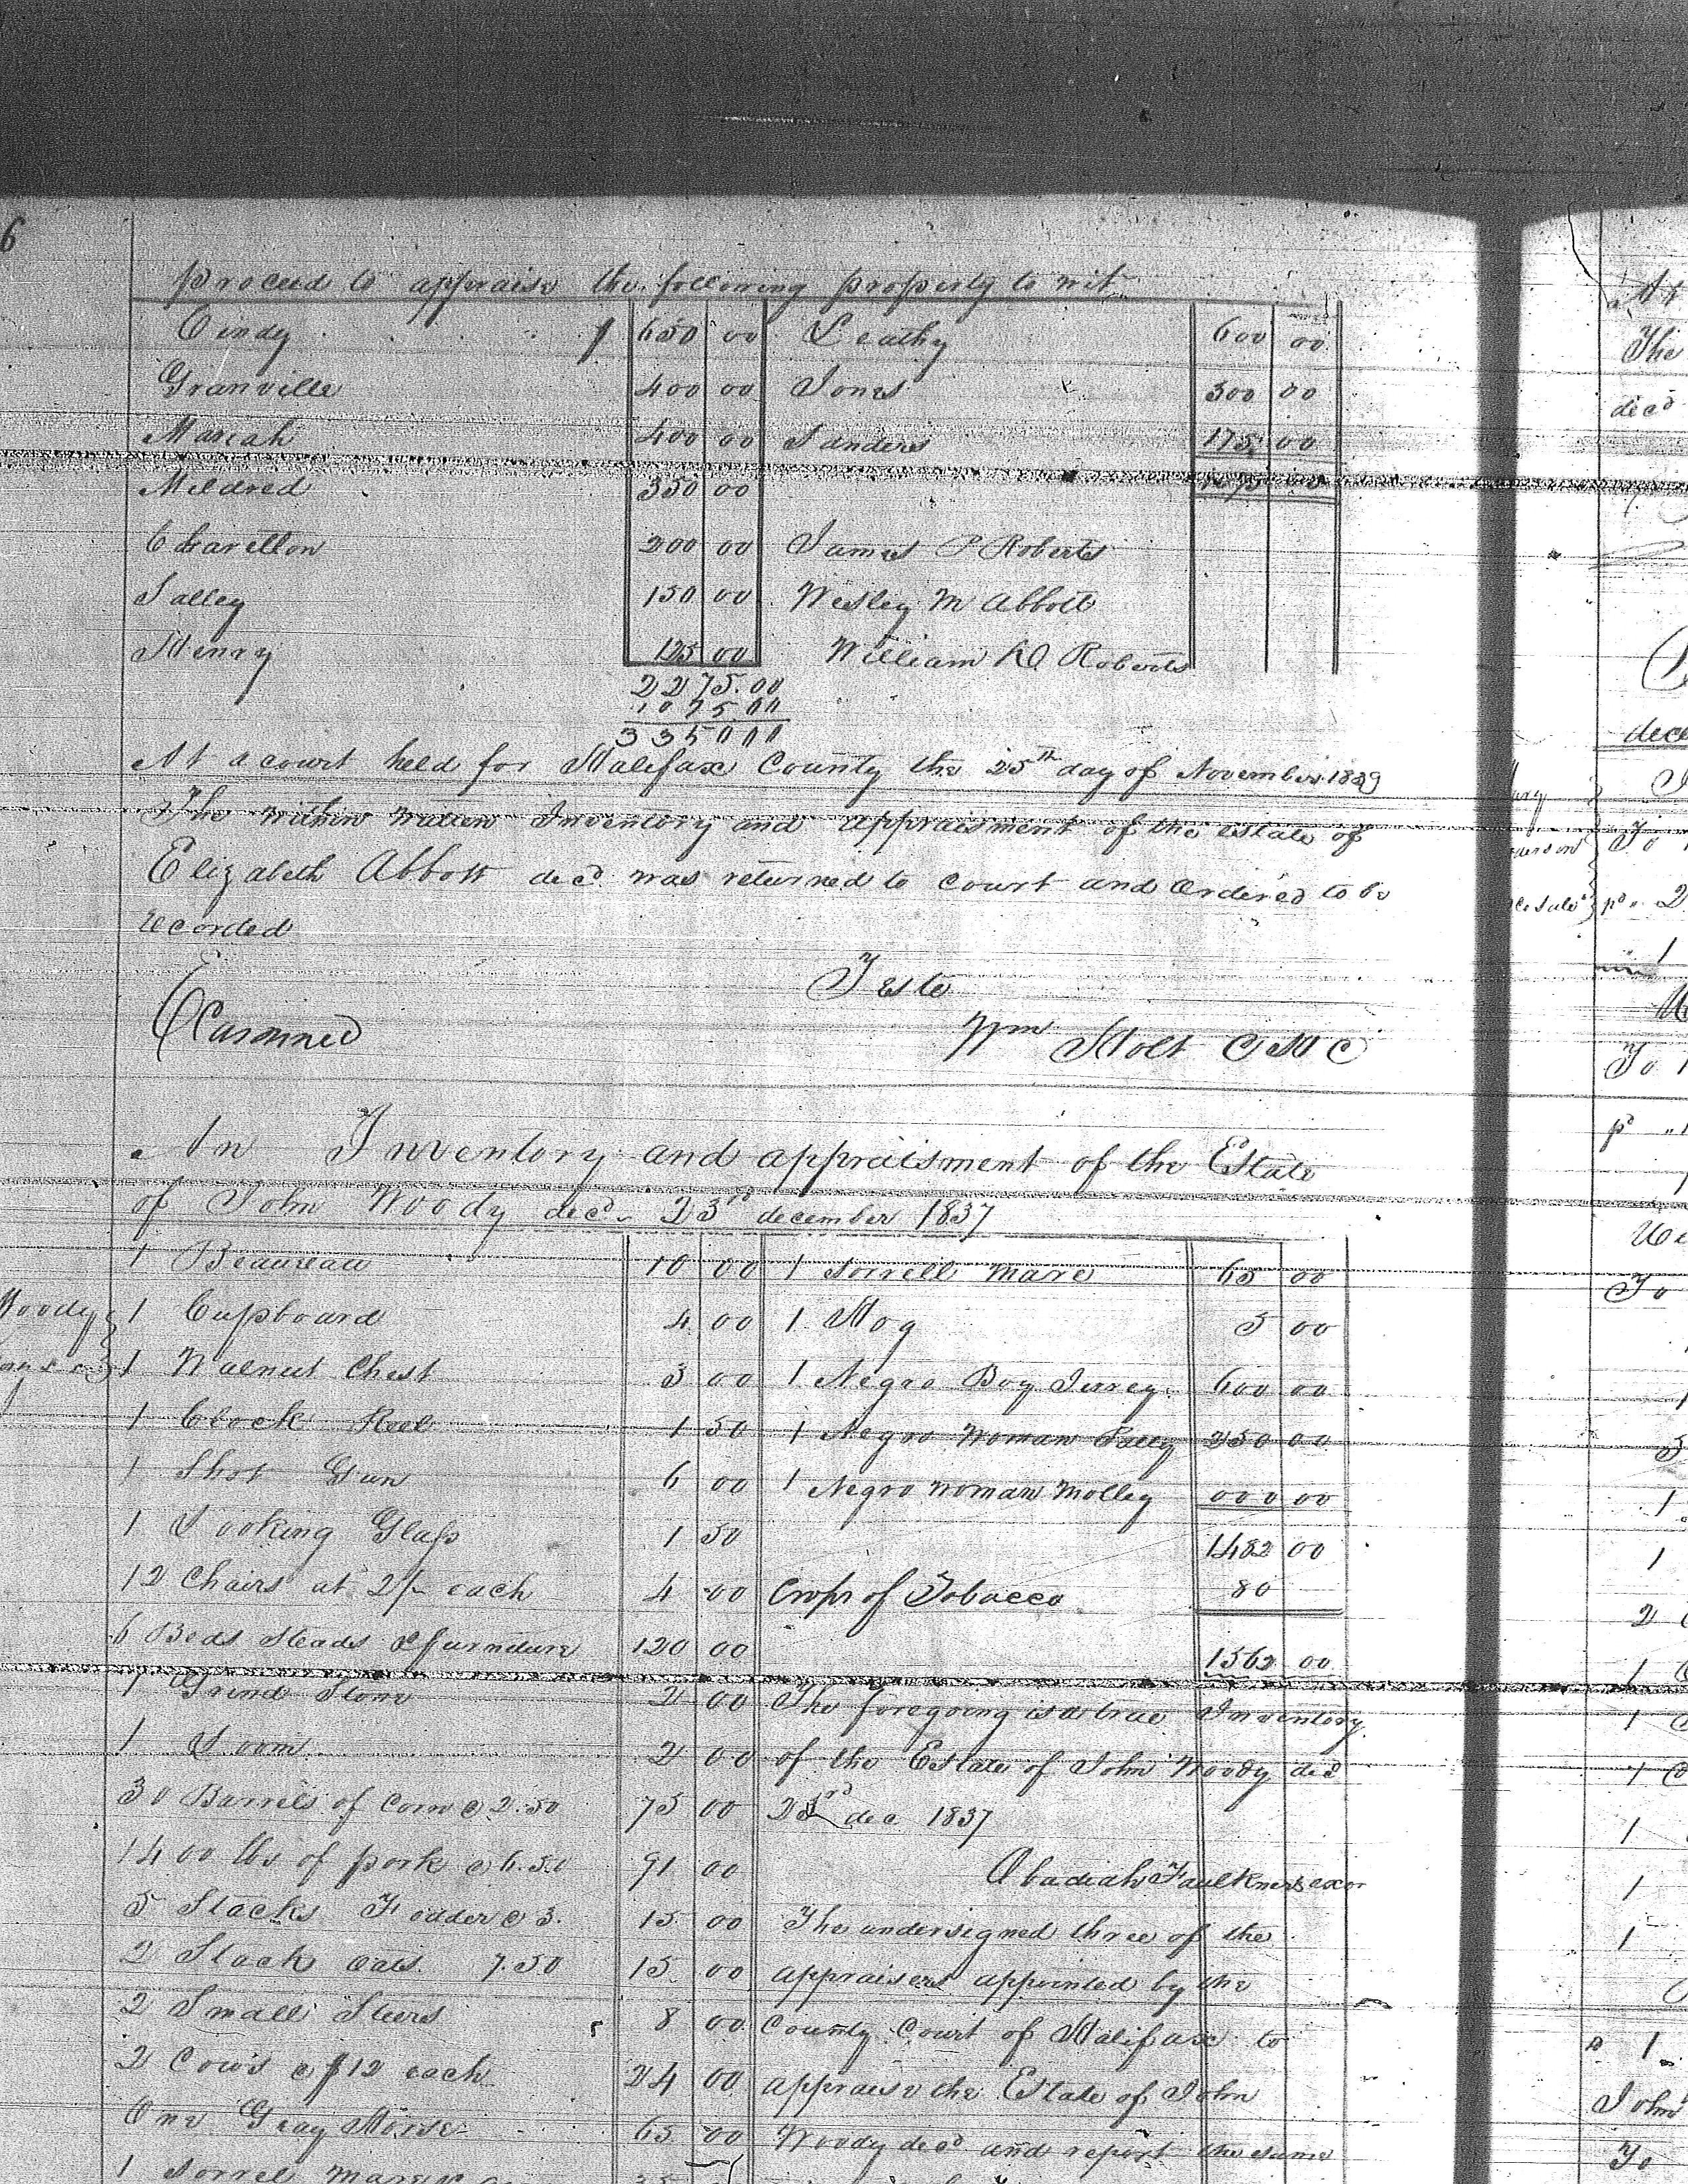 6
proceed to appraise the following property to wit
Cindy $ 650 00 Leathy 600 00
Granville 400 00 Jones 300 00
Mariah 400 00 Sanders 175 00
Mildred 350 00 1075 00
Charelton 200 00 James P Roberts
Salley 150 00 Wesley M Abbott
Henry 125 00 William D Roberts
2275.00
1075 00
335000
At a court held for Halifax County the 25th day of November 1839
The within written Inventory and appraisment of the estate of
Elizabeth Abbott decd was returned to court and Ordered to be
recorded
Teste
Examined Wm Holt C H C
An Inventory and appraisment of the Estate
of John Woody decd 23rd december 1837
1 Beaureau 10 00 1 Sorrell mare 65 00
Woody 1 Cupboard 4 00 1 Hog 5 00
1 Walnut Chest 3 00 1 Negro Boy Jerrey 600 00
1 Clock Reel 1 50 1 Negro Woman 250 00
1 Shot Gun 6 00 1 Negro woman Molley 000 00
1 Looking Glass 1 50 1482 00
12 Chairs at 2/- each 4 00 Crops of Tobacco 80
6 Beds Steads & furniture 120 00 1562 00
1 Grind Stone 2 00 The foregoing is a true Inventory
1 Loom 2 00 of the Estate of John Woody decd
30 Barrels of Corn @ 2.50 75 00 23rd dec 1837
1400 lbs of pork @ 6.50 91 00 Abadiah Faulkner exor
5 Stacks Fodder @ 3. 15 00 The undersigned three of the
2 Stack oats 7.50 15 00 appraisers appointed by the
2 Small Steers 8 00 County Court of Halifax to
2 Cows @ $12 each 24 00 appraise the Estate of John
One Gray Horse 65 00 Woody decd and report the same
1 Sorrel mare
The
decd
dece
To
pd 2
1
To 1
pd
To
1
2
1
1
1
1
1
1
1
John
To